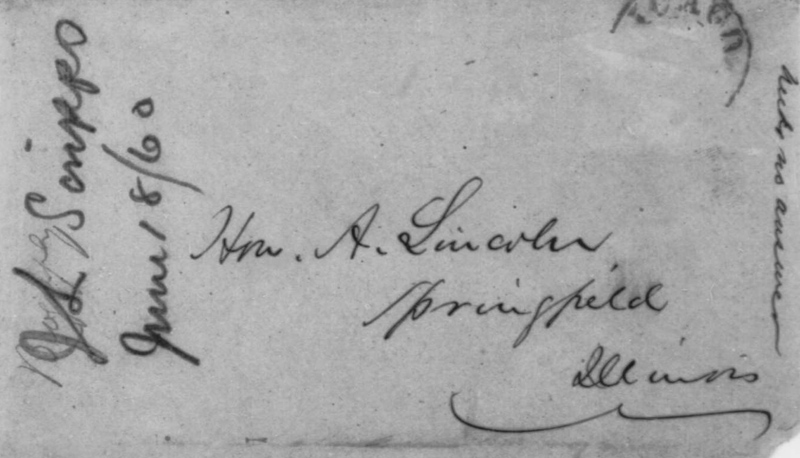 J L Scripps
June 18/60
Hon. A. Lincoln
Springfield
Illinois
needs no answer